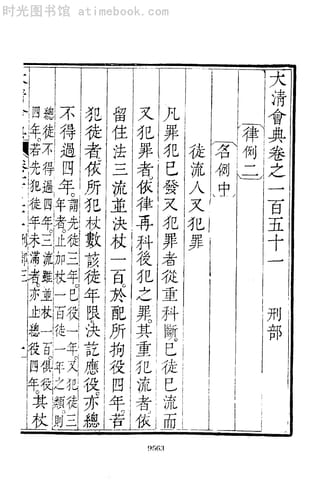 时光图书馆 atimebook.com
大清會典卷之一百五十一 刑部
律例二
名例中
徒流人又犯罪
凡罪犯已發又犯罪者從重科斷已徒已流而
又犯罪者依律再科後犯之罪其重犯流者依
留住法三流並決杖一百於配所拘役四年若
犯徒者依所犯杖數該徒年限決訖應役亦總
不得過四年謂先徒三年已役一年又犯徒三
年者止加杖一百徒一年之類則
總徒不得過四年三流雖並杖一百俱役
四年若先犯徒年未滿者亦止總役四年其杖
9563